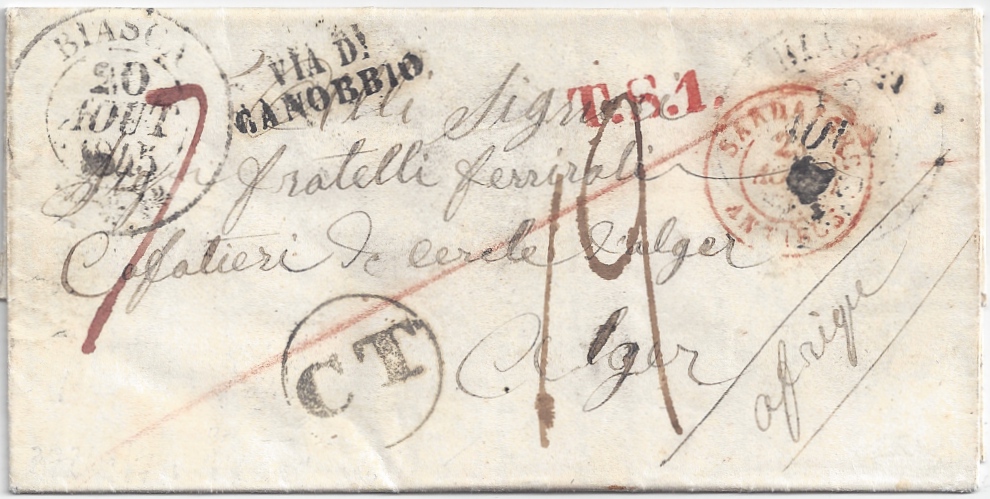 BIASCA
20
AOUT
1845
VIA DI
CANOBBIO
T.S.1.
BIASCA
AOUT
SARDAIGNE
ANTIBES
7
19
Alli Signori
fratelli ferriroli
Cafatieri De cercle d'alger
Alger
afrique
CT